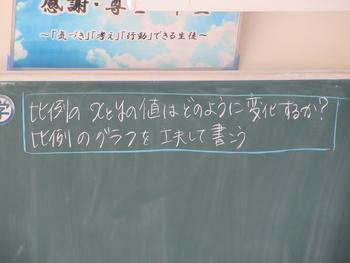 感謝・尊
～「気づき」「考え」「行動」できる生徒～
学
比例の xとyの値はどのように変化するか？
比例のグラフを工夫して書こう